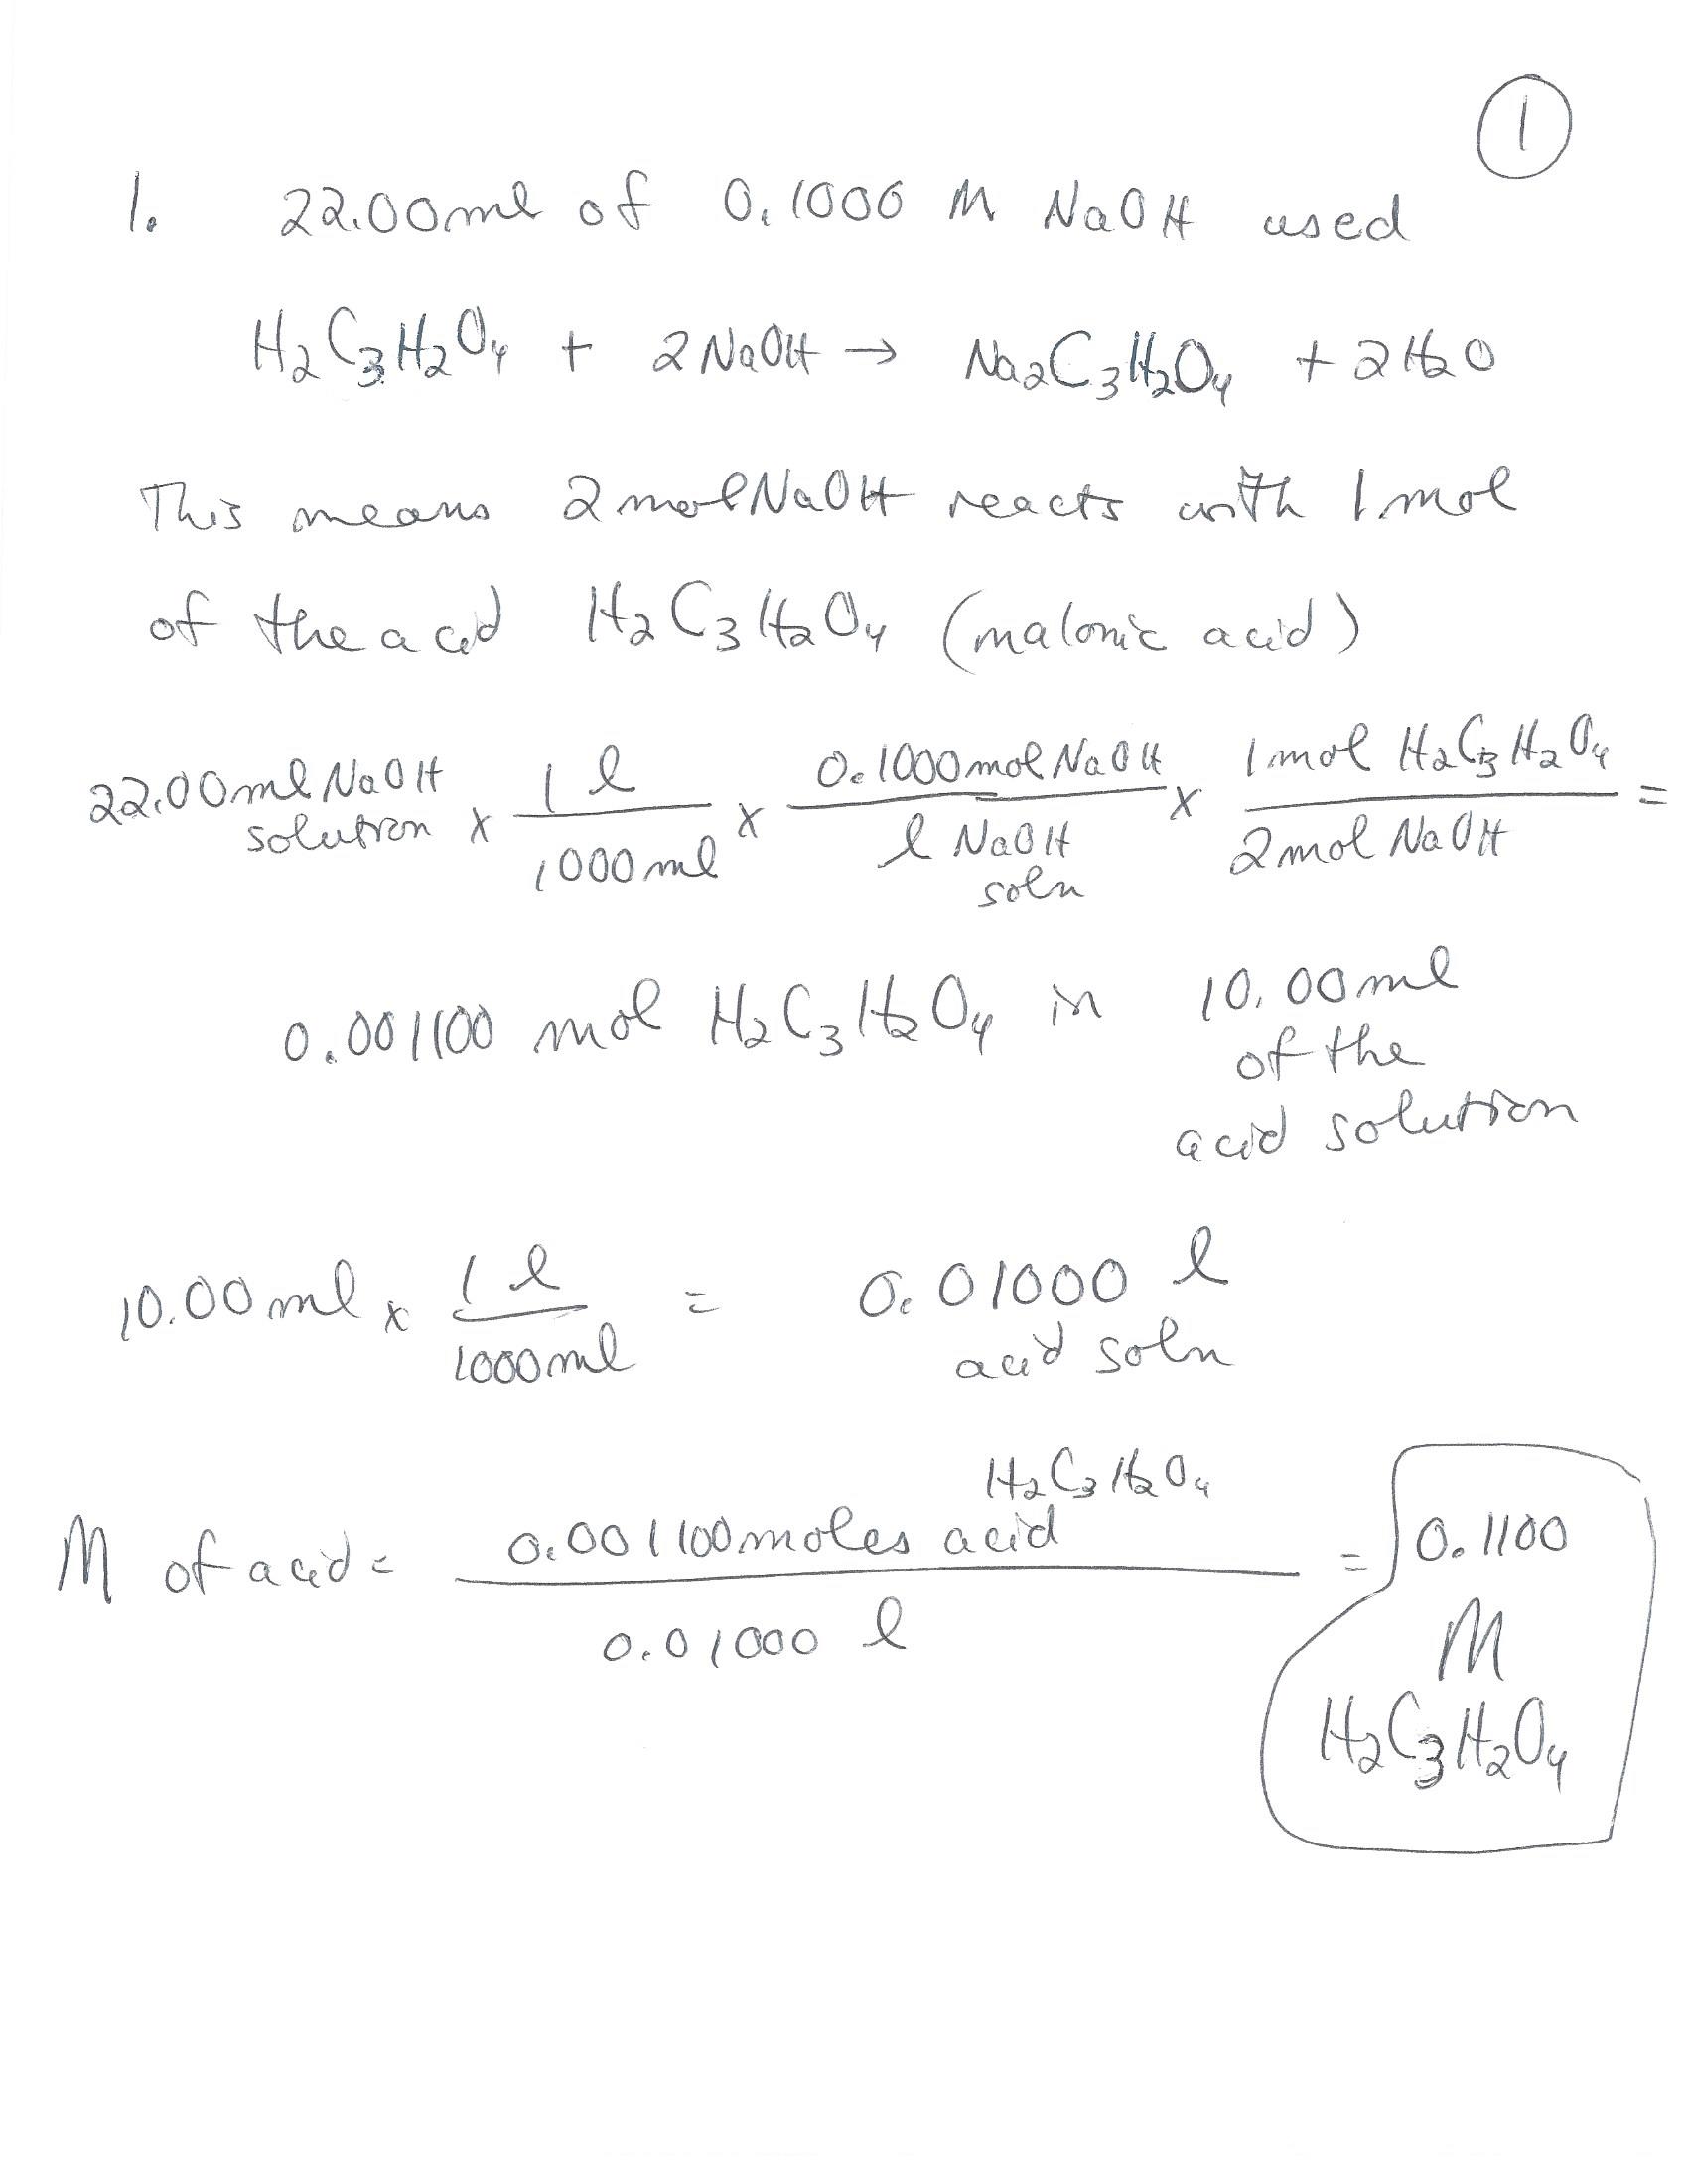 ①
1. 22.00ml of 0.1000 M NaOH used
H₂C₃H₂O₄ + 2NaOH → Na₂C₃H₂O₄ + 2H₂O
This means 2molNaOH reacts with 1mol
of the acid H₂C₃H₂O₄ (malonic acid)
22.00ml NaOH solution x 1 l / 1000ml x 0.1000mol NaOH / l NaOH soln x 1mol H₂C₃H₂O₄ / 2mol NaOH =
0.001100 mol H₂C₃H₂O₄ in 10.00ml
of the
acid solution
10.00ml x 1 l / 1000ml = 0.01000 l
acid soln
M of acid = 0.001100moles acid H₂C₃H₂O₄ / 0.01000 l = 0.1100
M
H₂C₃H₂O₄